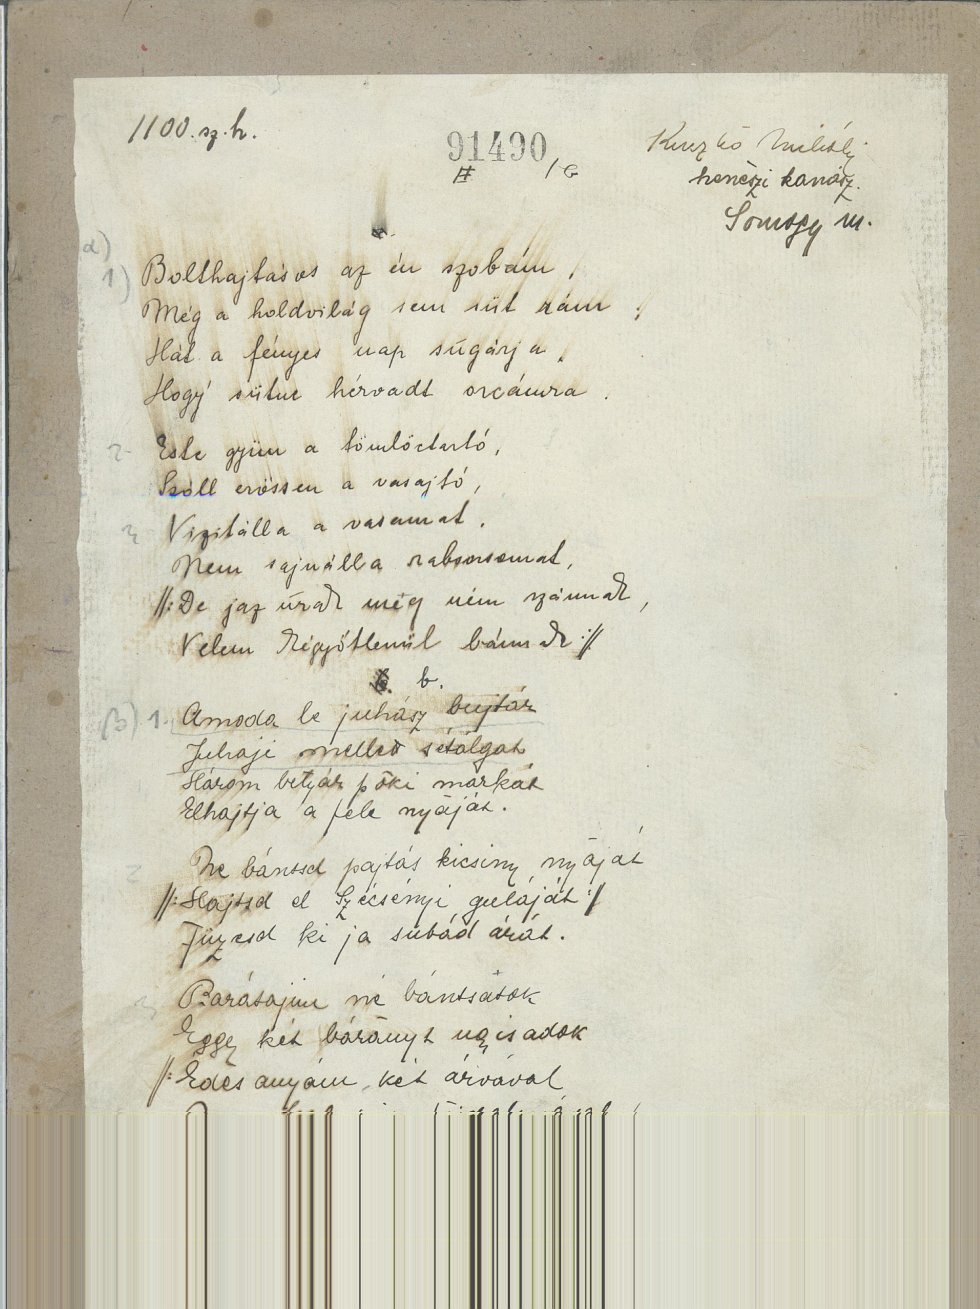 1100. sz. h.
91490
Kuszkó Mihály
henészi kanász.
Somogy m.
a.
α)
1) Bolthajtásos az én szobám,
Még a holdvilág sem süt rám,
Hát a fényes nap súgárja,
Hogy sütne hérvadt orcámra.
2. Este gyün a tömlőctartó,
Szóll erőssen a vasajtó,
3 Vizitálla a vasamat,
Nem sajnálla rabsorsomat,
//: De jaz úrak még ném szánnak,
Velem bánnak ://
b.
β) 1. Amoda le juhász bujtár
Juhaji mellett sétálgat
Három betyár pöki markát
Elhajtja a fele nyáját.
2 Ne bántsd pajtás kicsiny nyáját
//: Hajtsd el Szécsényi guláját ://
Füzesd ki ja subád árát.
3 Barátajim né bántsátok
Eggy két bárányt ugisadok
//: Édes anyám, két árvával